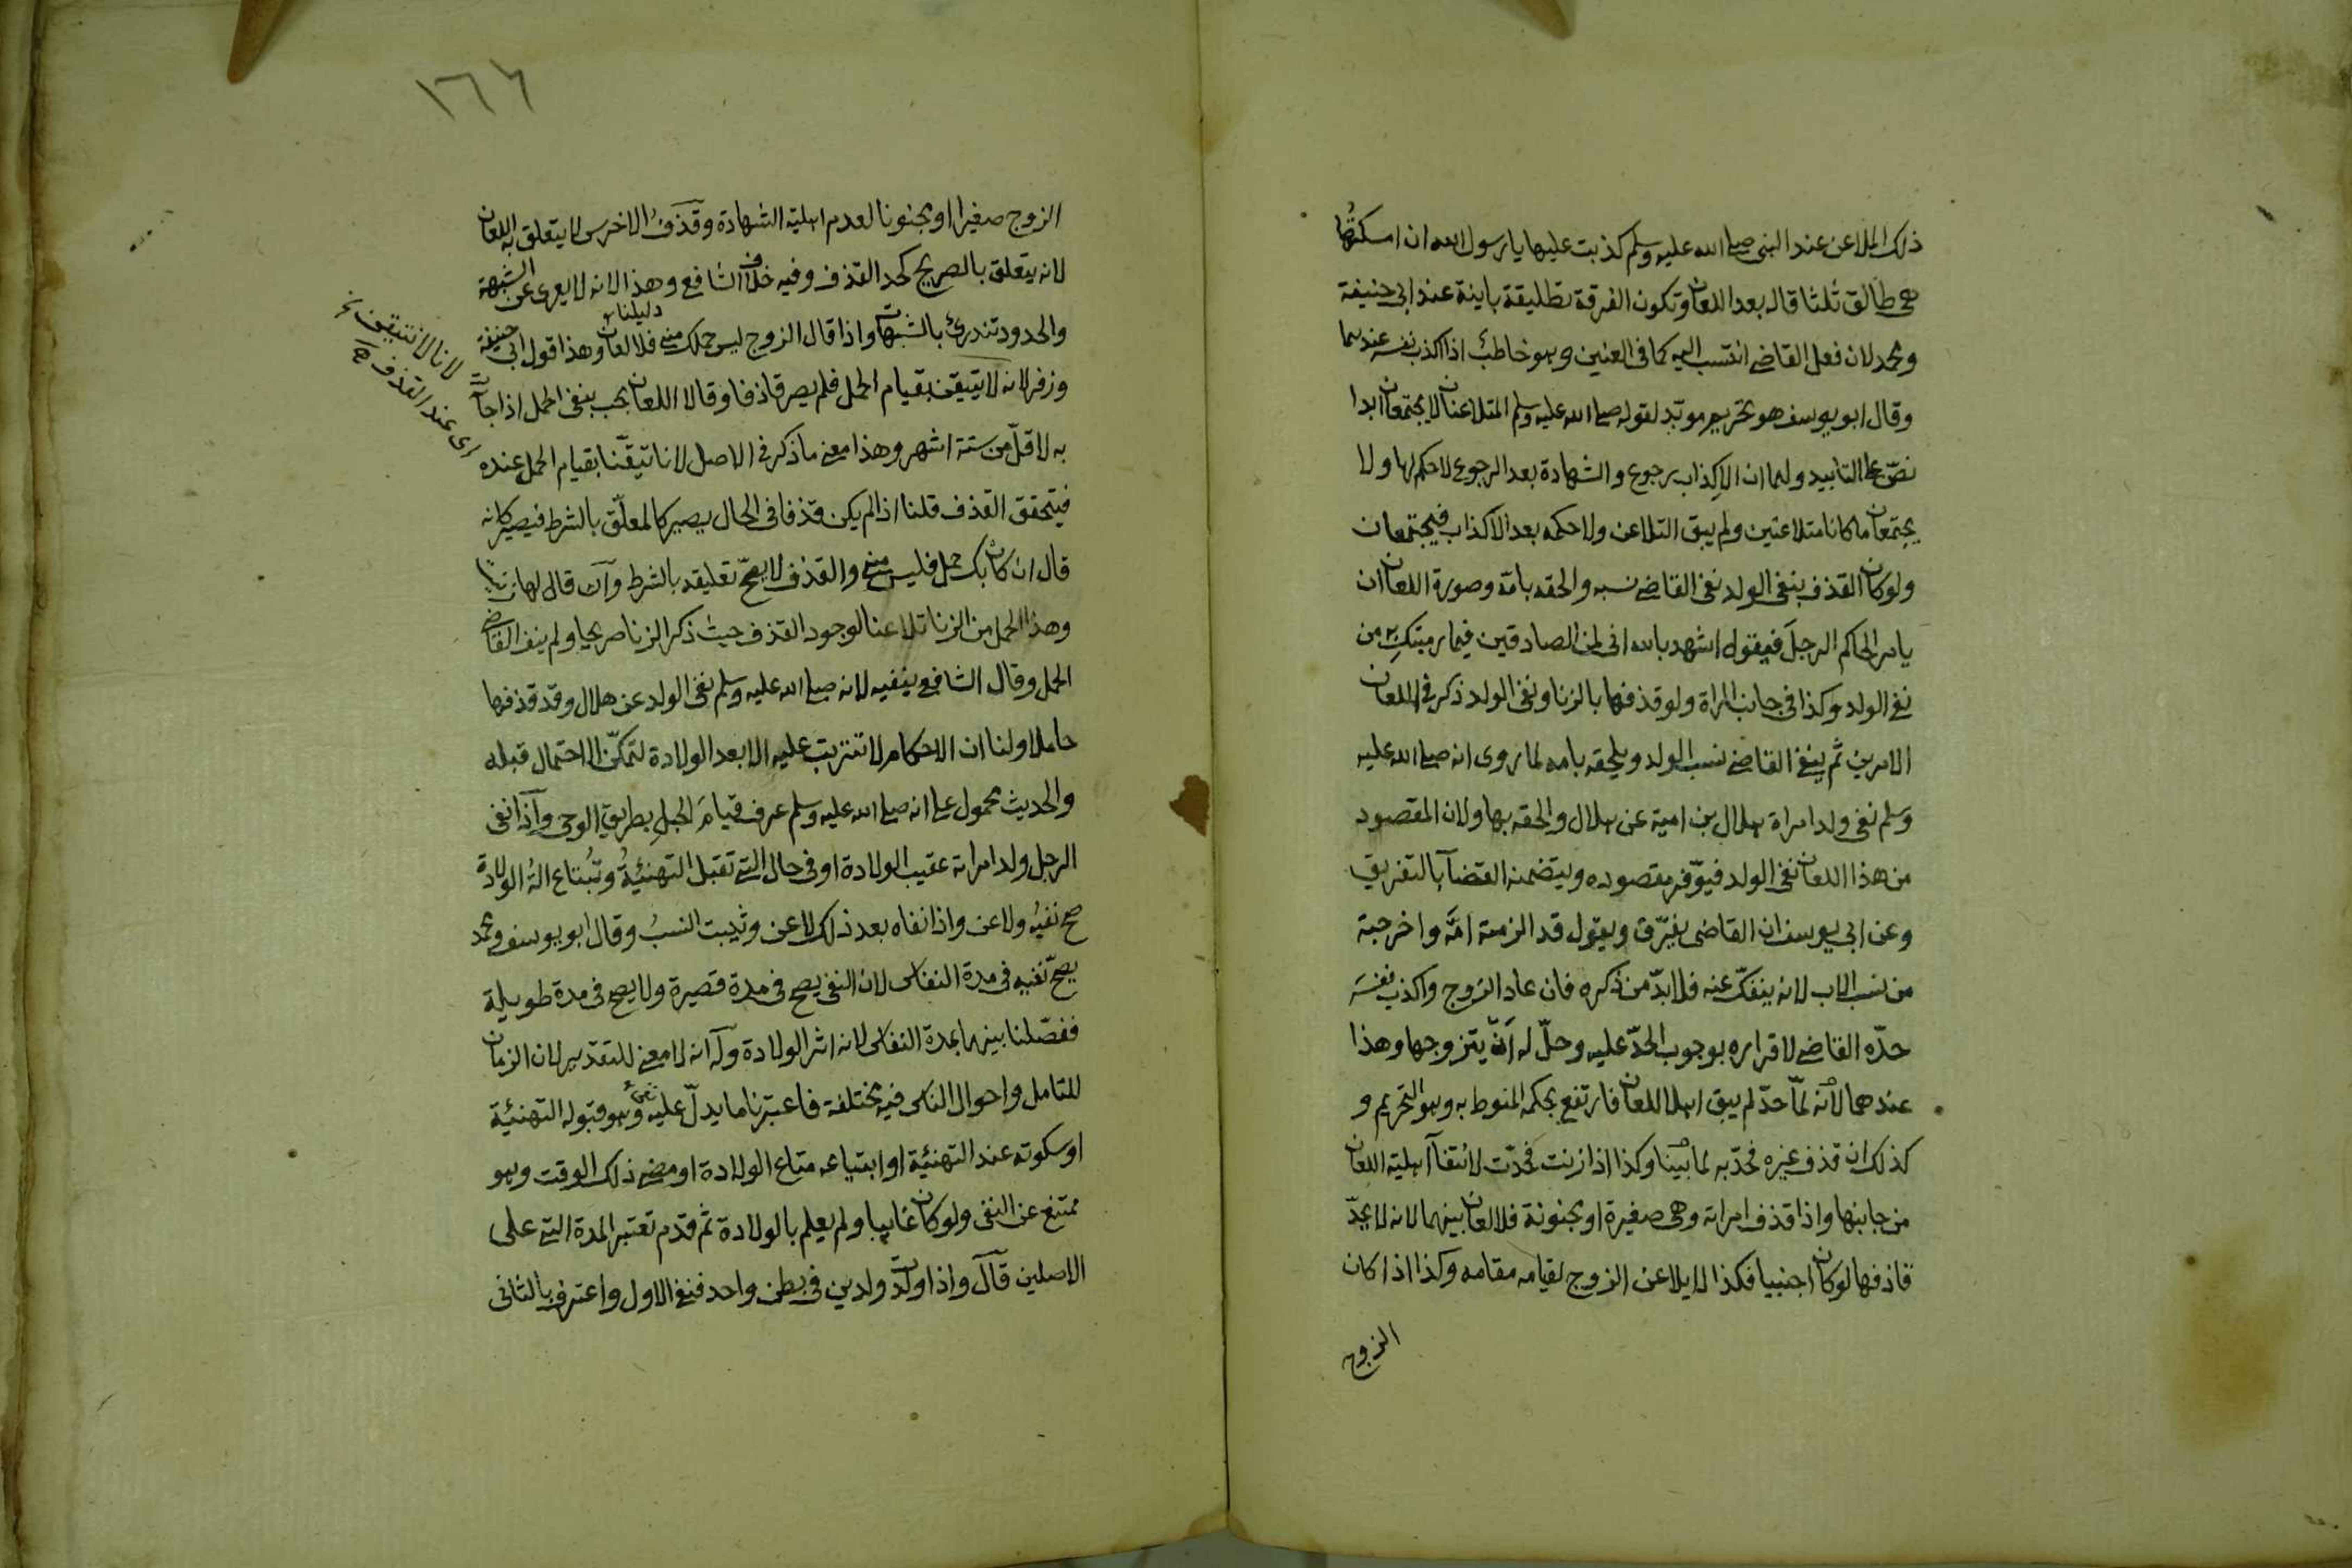 ذلك الملاعن عند النبى صلى الله عليه وسلم كذبت عليها يا رسول الله ان امسكتُها
هى طالق ثلثا قاله بعد اللعان وتكون الفرقة تطليقة باينة عند ابى حنيفة
ومحمد لان فعل القاضى انتسب اليه كما فى العنين وهو خاطبٌ اذا اكذب نفسه عندهما
وقال ابو يوسف هو تحريم موبّد لقوله صلى الله عليه وسلم المتلاعنان لا يجتمعان ابدا
نصّ على التابيد ولهما ان الاكذاب رجوع والشهادة بعد الرجوع لا حكم لها ولا
يجتمعان ما كانا متلاعنين ولم يبق التلاعن ولا حكمه بعد الاكذاب فيجتمعان
ولو كان القذف بنفى الولد نفى القاضى نسبه والحقه بامّه وصورة اللعان ان
يامر الحاكم الرجلَ فيقول اشهد بالله انى لمن الصادقين فيما رميتكِ به من
نفى الولد وكذا فى جانب المراة ولو قذفها بالزنا ونفى الولد ذكر فى اللعان
الامرين ثم ينفى القاضى نسب الولد ويلحقه بامه لما روى انه صلى الله عليه
وسلم نفى ولد امراة هلال بن امية عن هلال والحقه بها ولان المقصود
من هذا اللعان نفى الولد فيوّفر مقصوده ويتضمنه القضآ بالتفريق
وعن ابى يوسف ان القاضى يفرّق ويقول قد الزمته امَّه واخرجته
من نسب الاب لانه ينفكّ عنه فلا بدّ من ذكره فان عاد الزوج واكذب نفسَه
حدّه القاضى لاقراره بوجوب الحدّ عليه وحلّ له انْ يتزوجها وهذا
عندهما لانّه لمّا حدّ لم يبق اهلا للعان فارتفع بحكمه المنوط به وهو التحريم و
كذلك ان قذف غيره فحدّ به لما بيّنا وكذا اذا زنت فحدّت لانتفآ اهلية اللعان
من جانبها واذا قذف امراته وهى صغيرة او مجنونة فلا لعان بينهما لانه لا يحدّ
قاذفها لو كان اجنبيا فكذا لا يلاعن الزوج لقيامه مقامه وكذا اذا كان
الزوج
١٦٦
الزوج صغيرا او مجنونا لعدم اهلية الشهادة وقَذفُ الاخرس لا يتعلق به اللعان
لانه يتعلق بالصريح كحد القذف وفيه خلاف الشافعى وهذا لانه لا يعرى عن الشبهة
والحدود تندرئ بالشبهات واذا قال الزوج ليس حملك منى فلا لعان وهذا قول ابى حنيفة
دليلنا
وزفر لانه لا يتيقن بقيام الحمل فلم يصر قاذفا وقالا اللعان يجب بنفى الحمل اذا جآت
لانا لا نتيقن
اى عند القذف
به لاقلّ من ستة اشهر وهذا معنى ما ذكر فى الاصل لانا تيقّنا بقيام الحمل عنده
فيتحقق القذف قلنا اذا لم يكن قذفا فى الحال يصير كالمعلّق بالشرط فيصير كانه
قال ان كان بك حمل فليس منى والقذف لا يصحّ تعليقه بالشرط وان قال لها زنيت
وهذا الحمل من الزنا تلاعنا لوجود القذف حيث ذكر الزنا صريحا ولم ينف القاضى
الحمل وقال الشافعى ينفيه لانه صلى الله عليه وسلم نفى الولد عن هلال وقد قذفها
حاملا ولنا ان الاحكام لا تترتب عليه الا بعد الولادة لتمكّن الاحتمال قبله
والحديث محمول على انه صلى الله عليه وسلم عرف قيامَ الحبل بطريق الوحى واذا نفى
الرجل ولد امراته عقيب الولادة او فى حال التى تقبل التهنئيةُ وتُبتاع الةُ الولادة
صح نفيُه ولاعن واذا نفاه بعد ذلك لاعن وثيبت النسبُ وقال ابو يوسف ومحمد
يصحّ نفيه فى مدة النفاس لان النفى يصح فى مدة قصيرة ولا يصح فى مدة طويلة
ففصّلنا بينهما بمدة النفاس لانه اثر الولادة وله انه لا معنى للتقدير لان الزمان
للتامل واحوال الناس فيه مختلفة فاعتبرنا ما يدلّ عليه وهو قبوله التهنئية
او سكوته عند التهنئية او ابتياعه متاع الولادة او مضى ذلك الوقت وهو
ممتنع عن النفى ولو كان غايبا ولم يعلم بالولادة ثم قدم تعتبر المدة التى على
الاصلين قال واذا ولدت ولدين فى بطن واحد فنفى الاول واعترف بالثانى